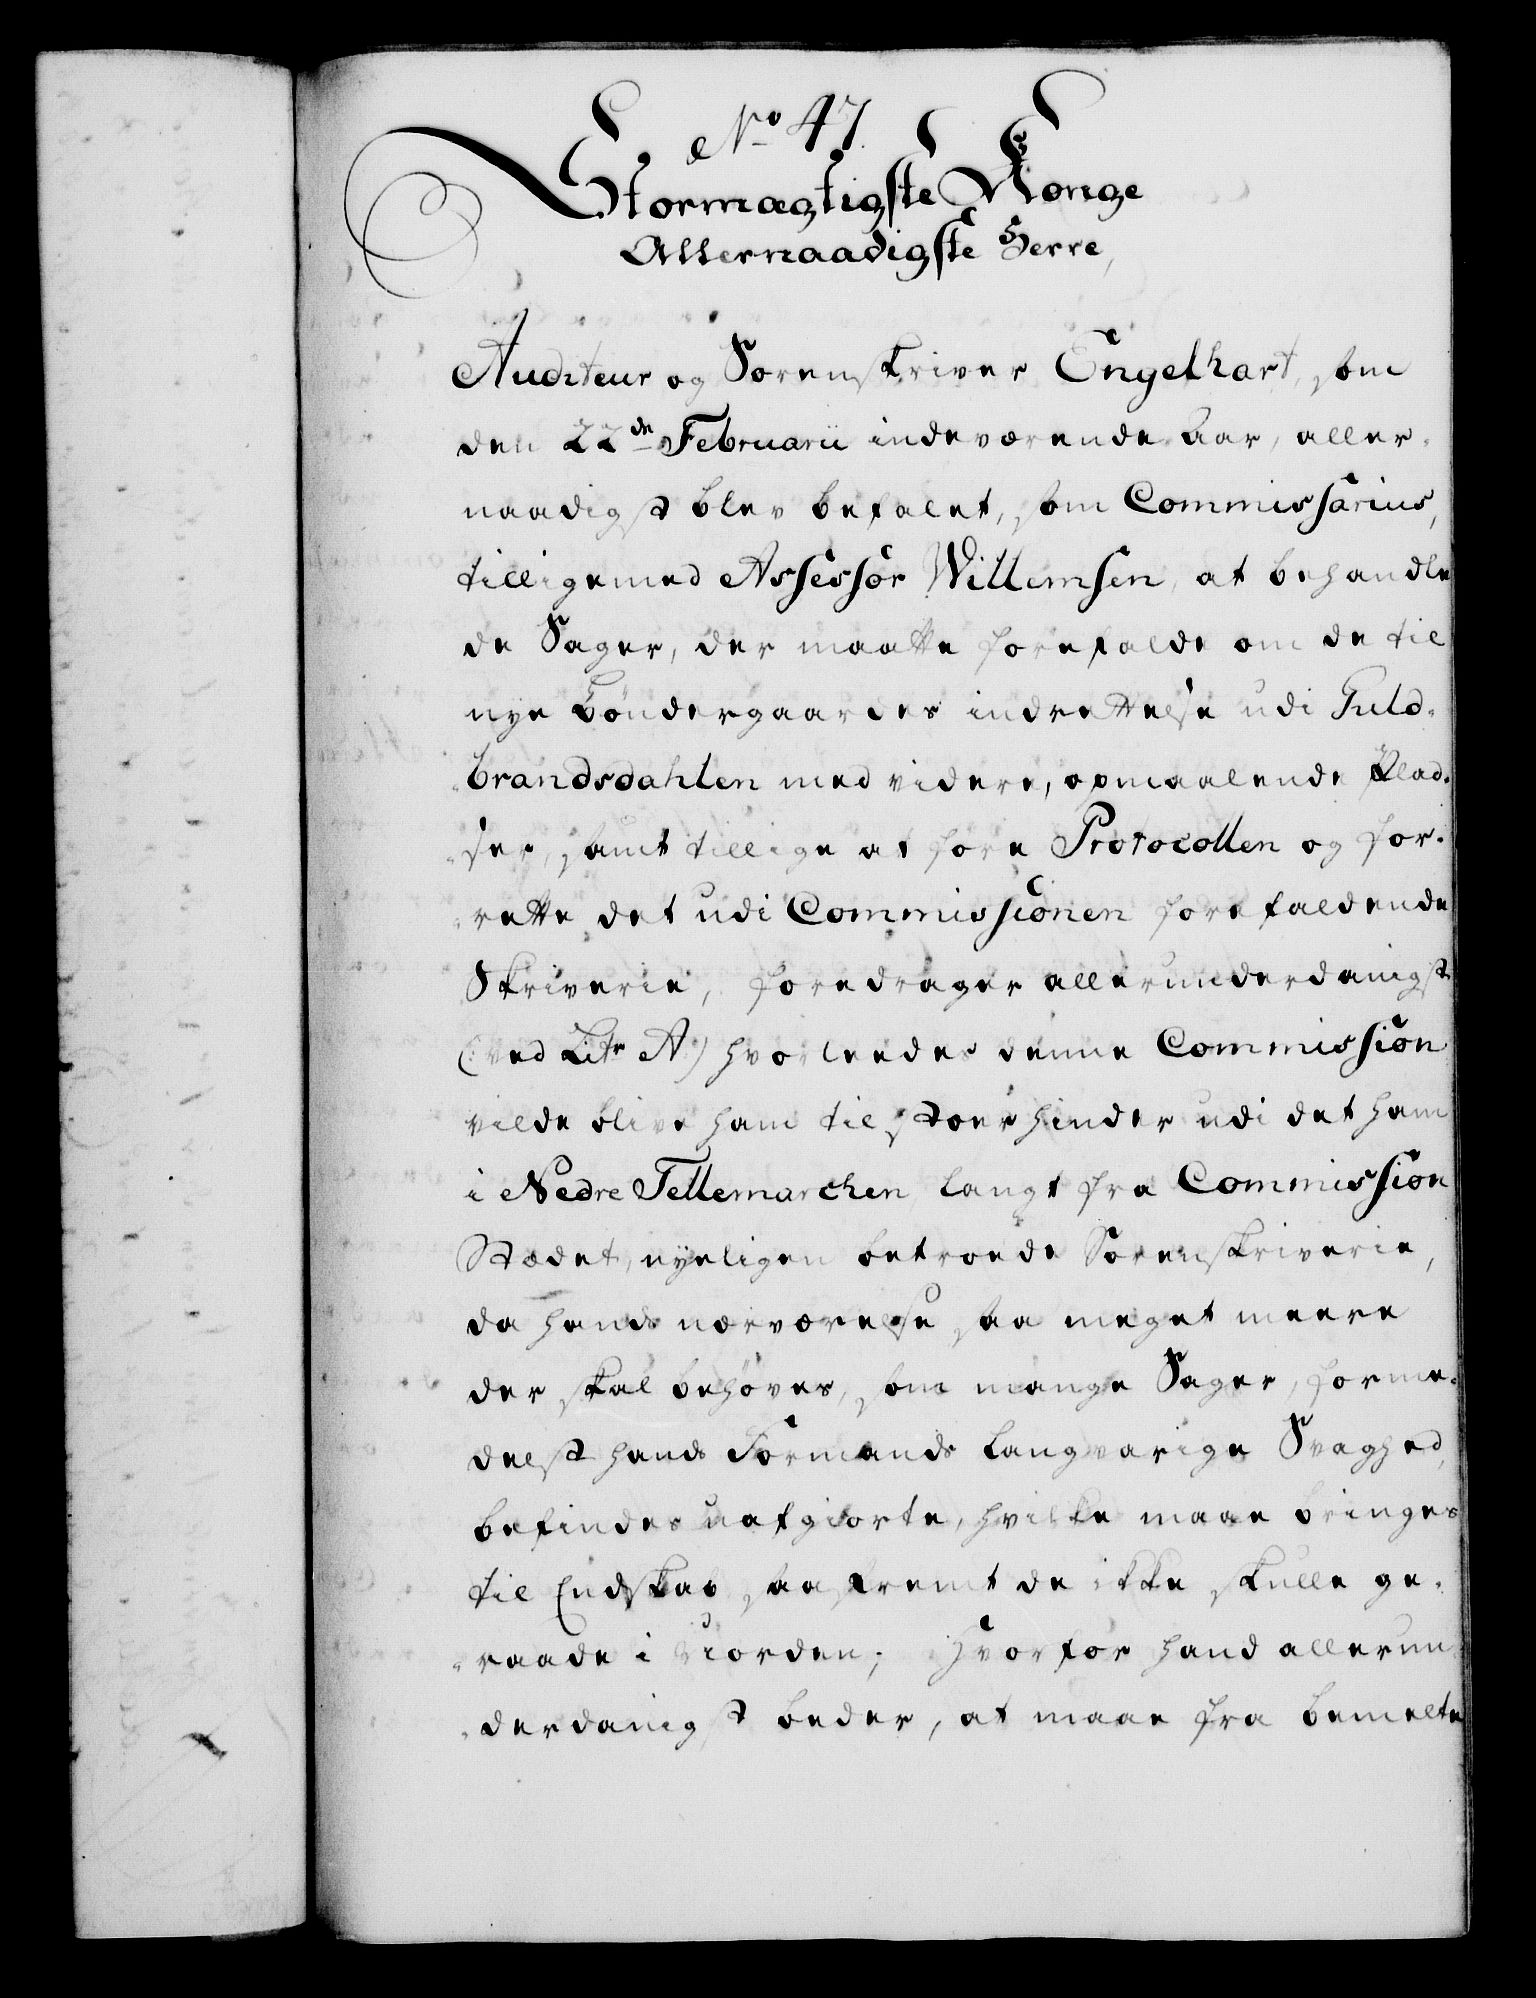 No 47.
Stormægtigste Konge
Allernaadigste Herre,
Auditeur og Sorenskriver Engelhart, som
den 22de Februarii indeværende Aar, aller-
naadigst blev befalet, som Commissarius,
tilligemed Assessor Willemsen, at behandle
de Sager, der maatte forefalde om de til
nye Bøndergaardes indrettelse udi Guld-
brandsdahlen med videre, opmaalende Plad-
ser, samt tillige at føre Protocollen og for-
rette det udi Commissionen forefaldende
Skriverie, foredrager allerunderdanigst
(: ved Litr A:) hvorleedes denne Commission
vilde blive ham til stoer hinder udi det ham
i Nedre Tellemarchen langt fra Commission
Stædet, nyeligen betroede Sorenskriverie,
da hands nærværelse saa meget meere
der skal behøves, som mange Sager, forme-
delst hands Formands langvarige Svaghed,
befindes uafgiorte, hvilke maae bringes
til Endskab saafremt de ikke skulle ge-
raade i Uorden; Hvorfor hand allerun-
derdanigst beder, at maae fra bemelte